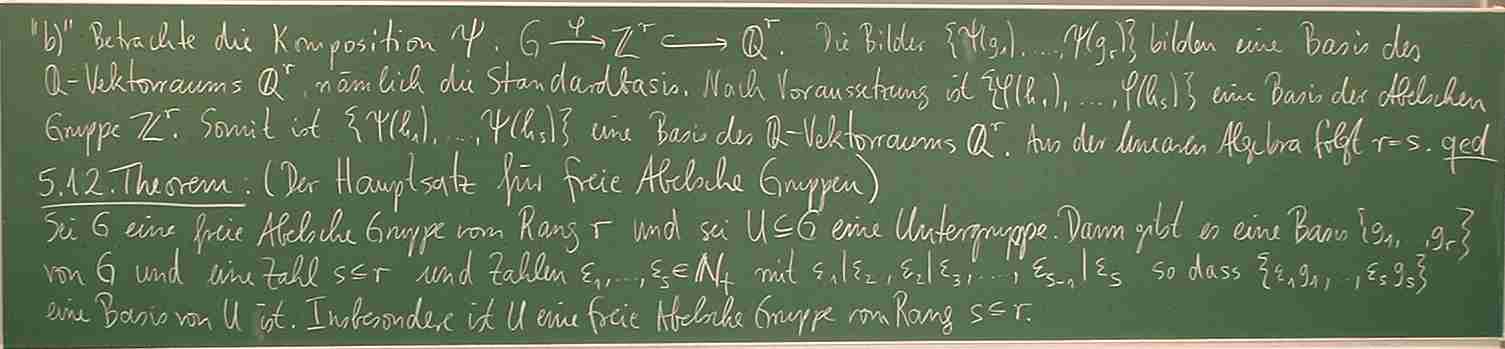 "b)" Betrachte die Komposition Ψ: G —φ→ ℤ^r ↪ ℚ^r. Die Bilder {Ψ(g₁),...,Ψ(g_r)} bilden eine Basis des
ℚ-Vektorraums ℚ^r, nämlich die Standardbasis. Nach Voraussetzung ist {φ(h₁),...,φ(h_s)} eine Basis der Abelschen
Gruppe ℤ^r. Somit ist {Ψ(h₁),...,Ψ(h_s)} eine Basis des ℚ-Vektorraums ℚ^r. Aus der linearen Algebra folgt r=s. qed
5.12. Theorem: (Der Hauptsatz für freie Abelsche Gruppen)
Sei G eine freie Abelsche Gruppe vom Rang r und sei U⊆G eine Untergruppe. Dann gibt es eine Basis {g₁, ,g_r}
von G und eine Zahl s≤r und Zahlen ε₁,...,ε_s∈ℕ₊ mit ε₁|ε₂, ε₂|ε₃,..., ε_{s-1}|ε_s so dass {ε₁g₁,..,ε_sg_s}
eine Basis von U ist. Insbesondere ist U eine freie Abelsche Gruppe vom Rang s≤r.